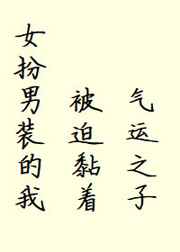 气运之子
被迫黏着
女扮男装的我